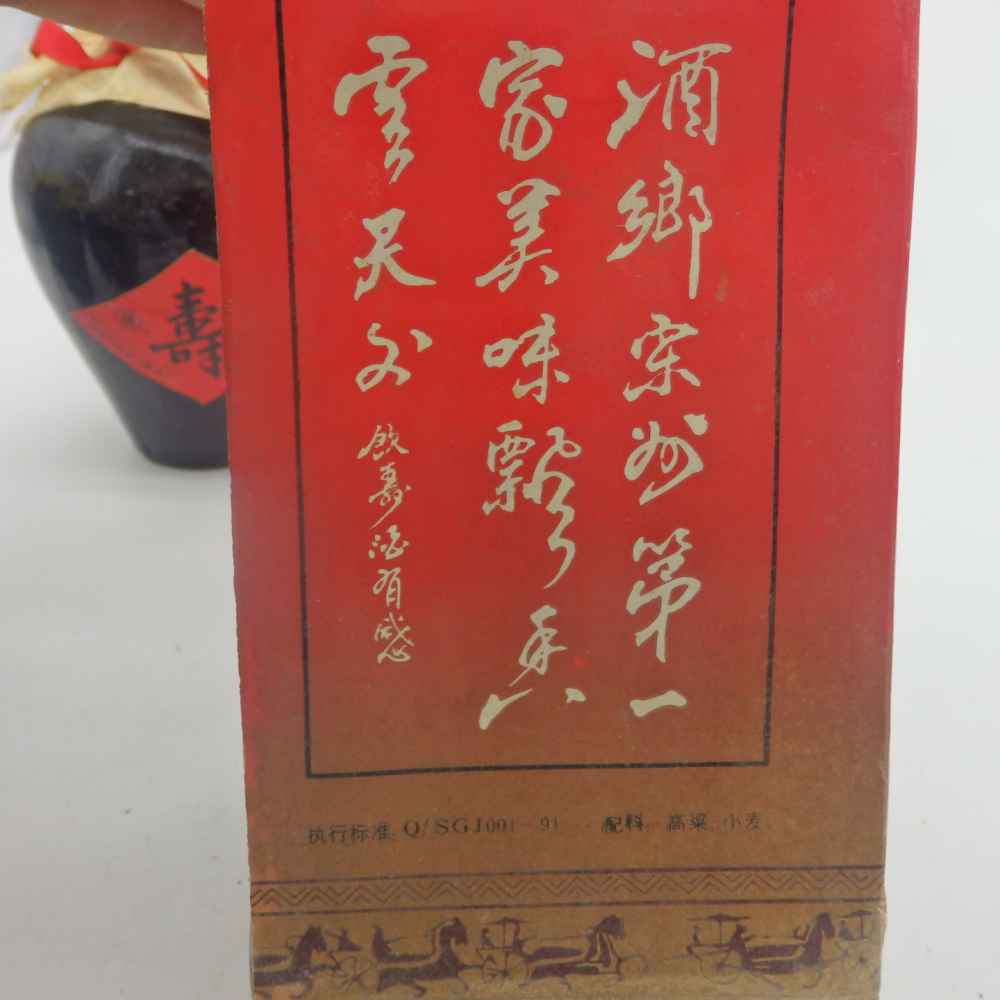 酒鄉宋州第一
家美味飄香
雲天外
飲壽酒有感
壽
执行标准:Q/SGJ001-91 配料:高粱、小麦